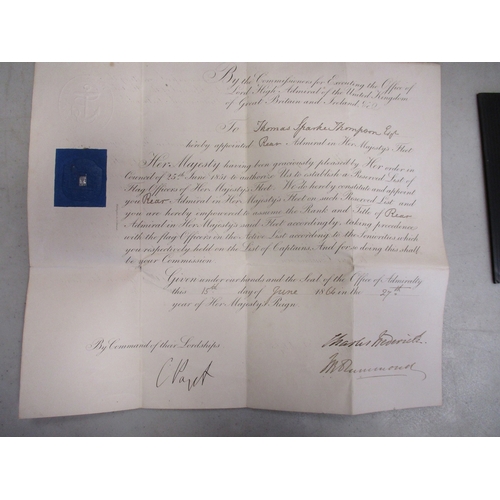 By the Commissioners for Executing the Office of
Lord High Admiral of the United Kingdom
of Great Britain and Ireland &c.
To Thomas Sparke Thompson Esqr
hereby appointed Rear Admiral in Her Majesty's Fleet
Her Majesty having been graciously pleased by Her order in
Council of 25th June 1851 to authorize Us to establish a Reserved List of
Flag Officers of Her Majesty's Fleet. We do hereby constitute and appoint
you Rear Admiral in Her Majesty's Fleet on such Reserved List and
you are hereby empowered to assume the Rank and Title of Rear
Admiral in Her Majesty's said Fleet accordingly taking precedence
with the flag Officers on the Active List according to the Seniorities which
you respectively held on the List of Captains. And for so doing this shall
be your Commission
Given under our hands and the Seal of the Office of Admiralty
this 15th day of June 186 in the 27th
year of Her Majesty's Reign
Charles Frederick
By Command of their Lordships
C Paget
Drummond